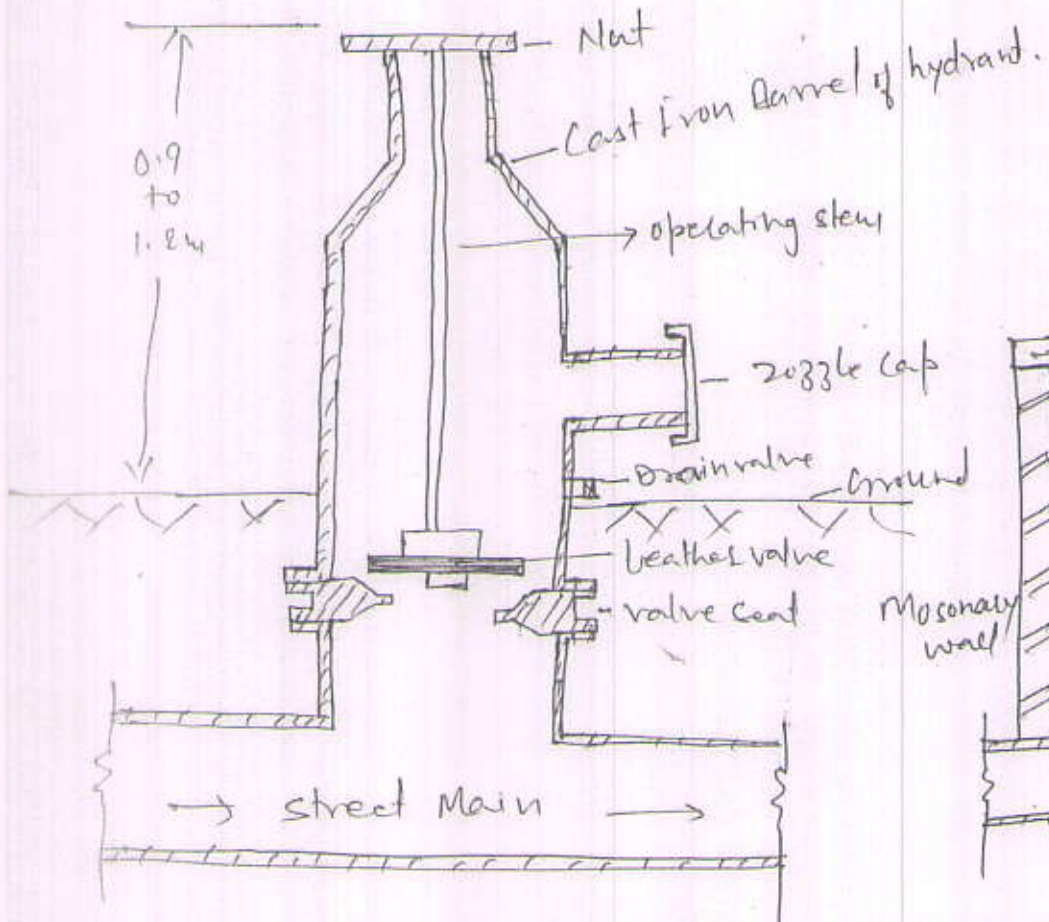 Nut
Cast Iron Barrel of hydrant.
0.9
to
1.2m
operating stem
nozzle cap
Drain valve
Ground
Leather valve
valve seat
Masonary
wall
street Main